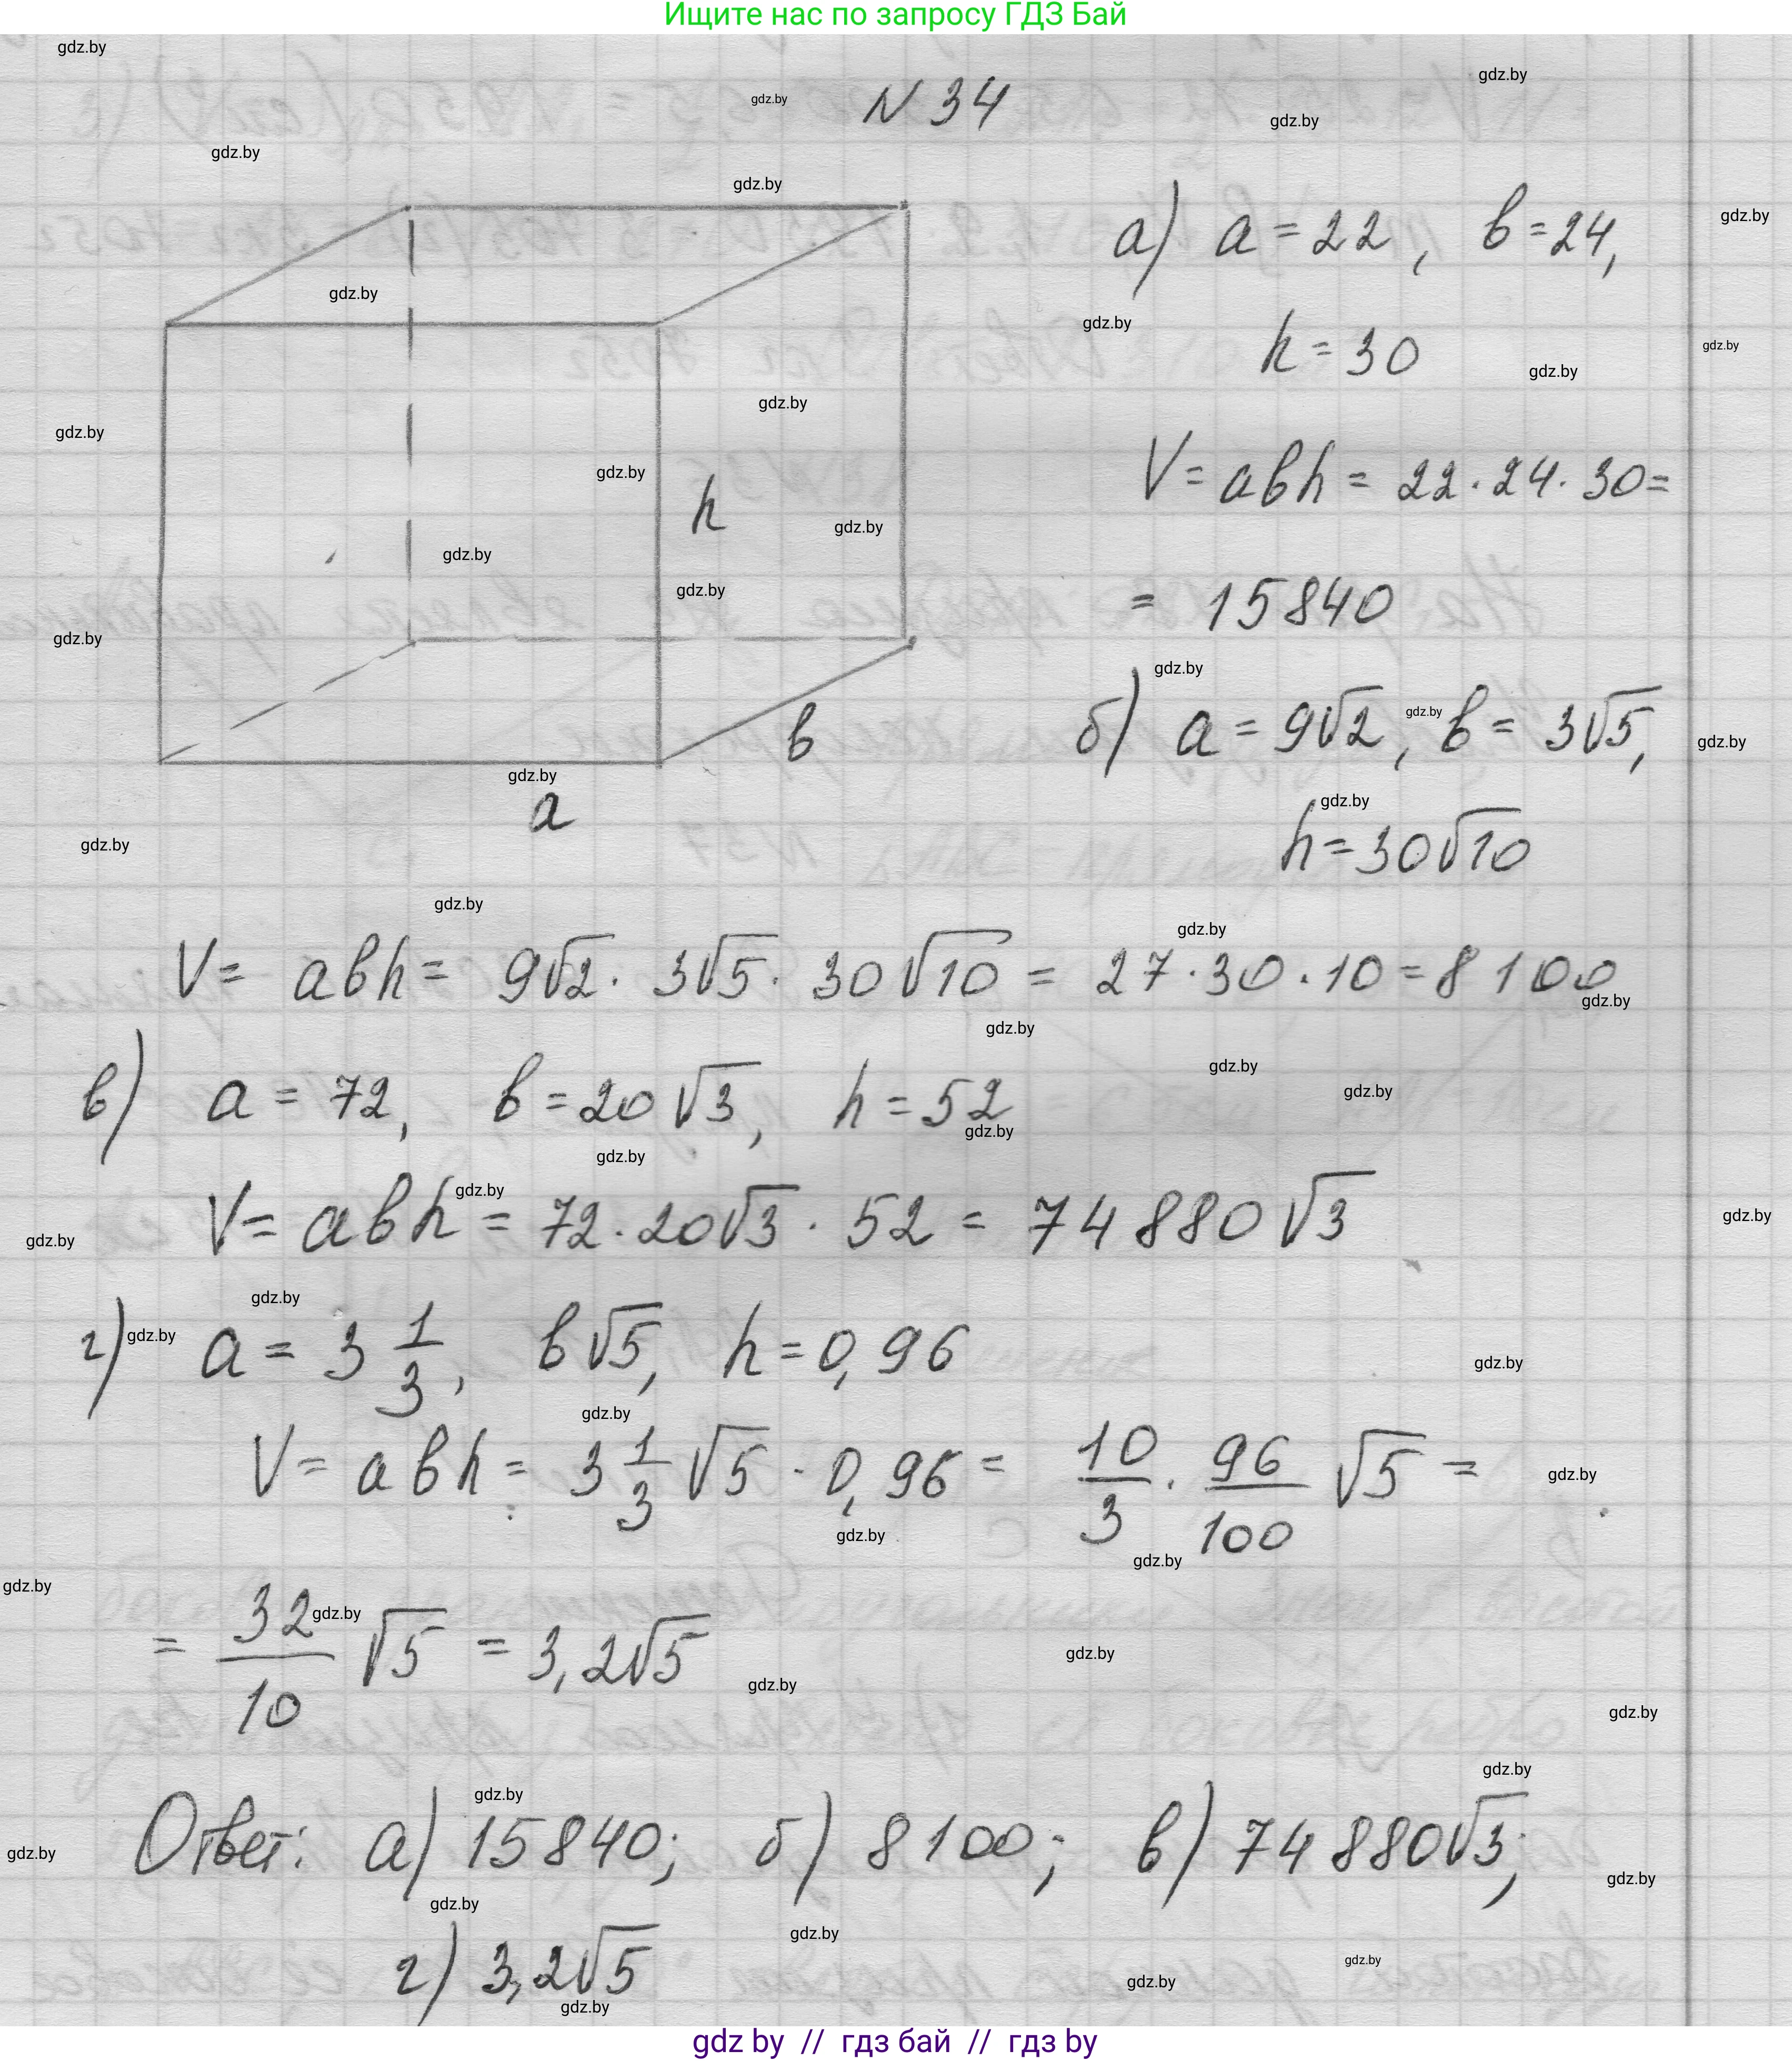 Ищите нас по запросу ГДЗ Бай
N 34
а) a = 22, b = 24,
h = 30
V = abh = 22 · 24 · 30 =
= 15840
б) a = 9√2, b = 3√5,
h = 30√10
h
b
a
V = abh = 9√2 · 3√5 · 30√10 = 27 · 30 · 10 = 8100
в) a = 72, b = 20√3, h = 52
V = abh = 72 · 20√3 · 52 = 74880√3
г) a = 3 1/3, b√5, h = 0,96
V = abh = 3 1/3 √5 · 0,96 = 10/3 · 96/100 √5 =
= 32/10 √5 = 3,2√5
Ответ: а) 15840; б) 8100; в) 74880√3;
г) 3,2√5
gdz by // гдз бай // гдз by